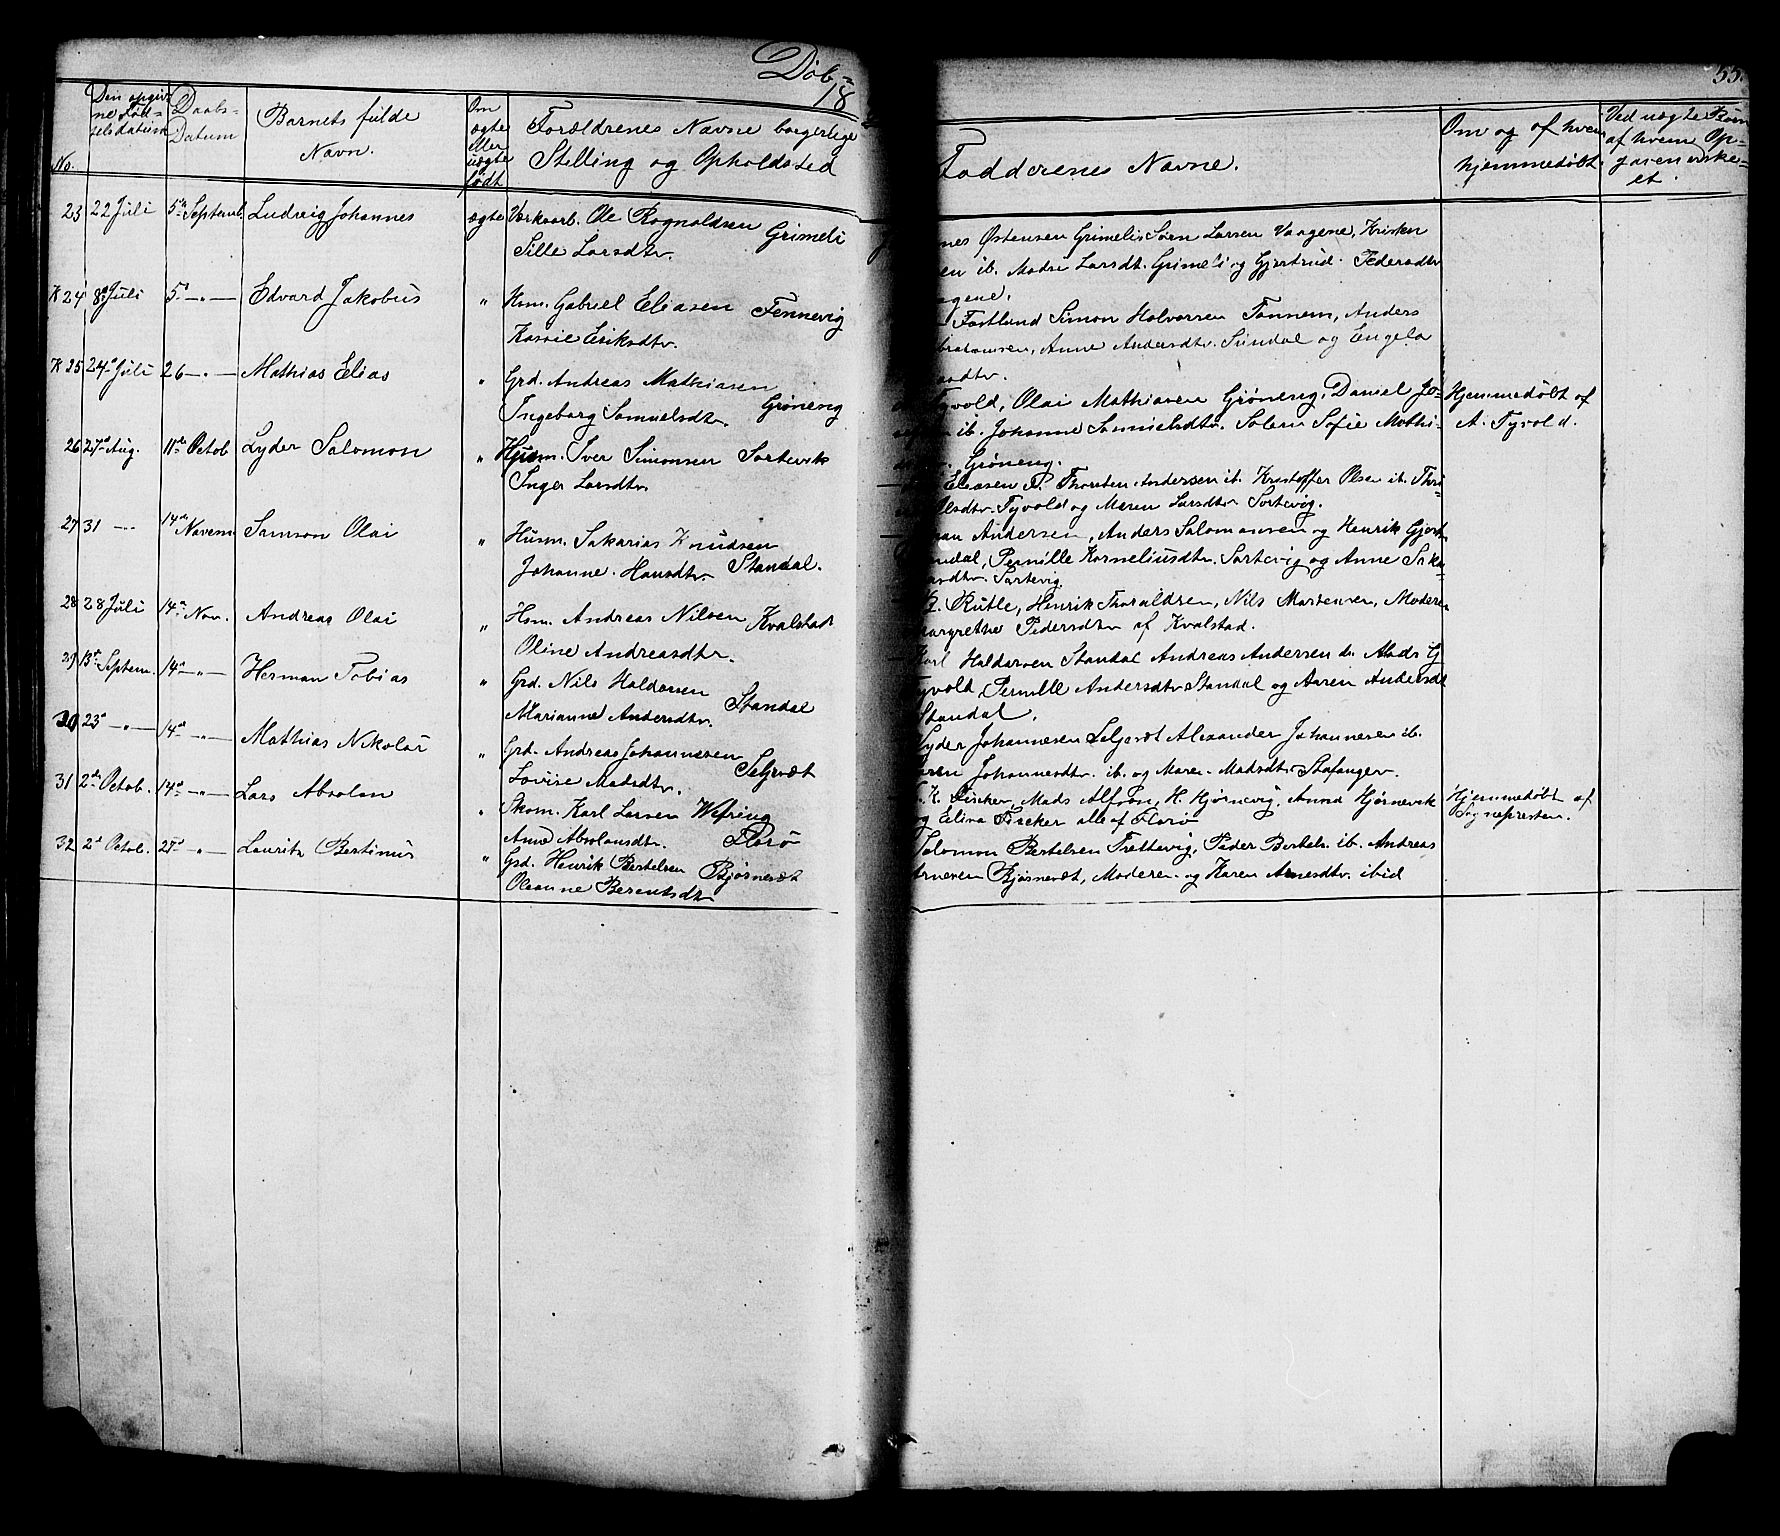 Døb-
18
55.
No.
Den opgiv-
ne Fød-
selsdatum
Daabs-
Datum
Barnets fulde
Navn.
Om
ægte
eller
uægte
født
Forældrenes Navne borgerlige
Stilling og Opholdssted
Fadderenes Navne.
Om og af hvem
hjemmedøbt
Ved uægte Børn
af hvem Op-
gaven erske-
et.
23 22 Juli 5te Septemb. Ludvig Johannes ægte Værkarb. Ole Rognaldsen Grimeli
Sille Larsdtr.
nes Østensen Grimeli Søren Larsen Vaagene, Kristen
en ib. Madse Larsdt. Grimeli og Gjertrud Pedersdtr
agene.
K 24 8de Juli 5te - " - Edvard Jakobus " Hsm. Gabriel Eliasen Fennevig
Eriksdtr.
Fastlund Simon Halvorsen Tonnem, Anders
Anne Andersdtr. Sundal og Engela
dtr.
K 25 24de Juli 26 - " - Mathias Elias " Grd. Andreas Mathiasen
Ingeborg Samuelsdtr. Grøneng
Tyvold, Olai Mathiasen Grøneng, Daniel Jo-
ib. Johanne Samuelsdtr. Solen Sofie Mathi-
Grøneng.
Hjemmedøbt af
A. Tyvold.
26 27de Aug. 11te Octob Lyder Salomon " Husm. Iver Simonsen Sortevik
Inger Larsdtr.
Eliasen Thorsten Andersen ib. Kristoffer Olsen ib. Thri-
Olsdtr. Tyvold og Maren Larsdtr Sortevig.
27 31 - " - 14de Novem. Samson Olai " Husm. Sakarias Knudsen
Johanne Hansdtr Standal.
an Andersen, Anders Salomonsen og Henrik Gjert
ndal, Pernille Korneliusdtr. Sortevig og Anne Saka-
asdtr. Sortevig.
28 28 Juli 14de Nov. Andreas Olai " Hsm. Andreas Nilsen Kvalstad
Oline Andreasdtr.
Rutle, Henrik Tharaldsen, Nils Mortensen, Moderen
argrethe Pedersdtr af Kvalstad.
29 13de Septem. 14de - " - Herman Tobias " Grd. Nils Haldorsen
Marianne Andersdtr. Standal
Karl Haldorsen Standal Andreas Andersen do. Mads G
yvold, Pernille Andersdtr Standal og Karen Andersdt
Standal.
30 23de - " - 14de - " - Mathias Nikolai " Grd. Andreas Johannesen
Lovise Madsdtr. Seljesæt
Lyder Johannesen Seljesæt Alexander Johannesen ib.
aren Johannesdtr. ib. og Maren Madsdtr Stafanger.
31 2den Octob. 14de - " - Lars Absolon " Skom. Karl Larsen Wefring
Anne Absolonsdtr. Florø
K. Fischer, Mads Alfsøn, H. Hjørnevig, Anna Hjørnevik
og Elina Fischer alle af Florø
Hjemmedøbt af
Sognepresten.
32 2de Octob. 21de - " - Lauritz Bertinus " Grd. Henrik Bertelsen Bjørnesæt
Oleanne Berentsdtr
Salomon Bertelsen Trettevig, Peder Bertels. ib. Andreas
Arnesen Bjørnesæt, Moderen og Karen Arnesdtr. ibid